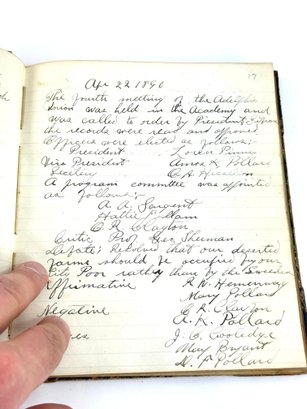 17
Apr 22 1890
The fourth meeting of the Adelphi
Union was held in the Academy and
was called to order by President
the records were read and approved
Officers were elected as follows:
President Loren Pinney
Vice President Amos K. Pollard
C A
A program committee was appointed
as follows:
A. A. Sargent
Hattie
C R Clayton
Critic Prof Geo Sherman
Debate: Resolved that our deserted
farms should be occupied by our
City Poor rather than by the Swedes
Affirmative R N Hemenway
Mary Pollard
Negative C R Clayton
A. K. Pollard
J. C. Cooledge
May Bryant
W. F Pollard